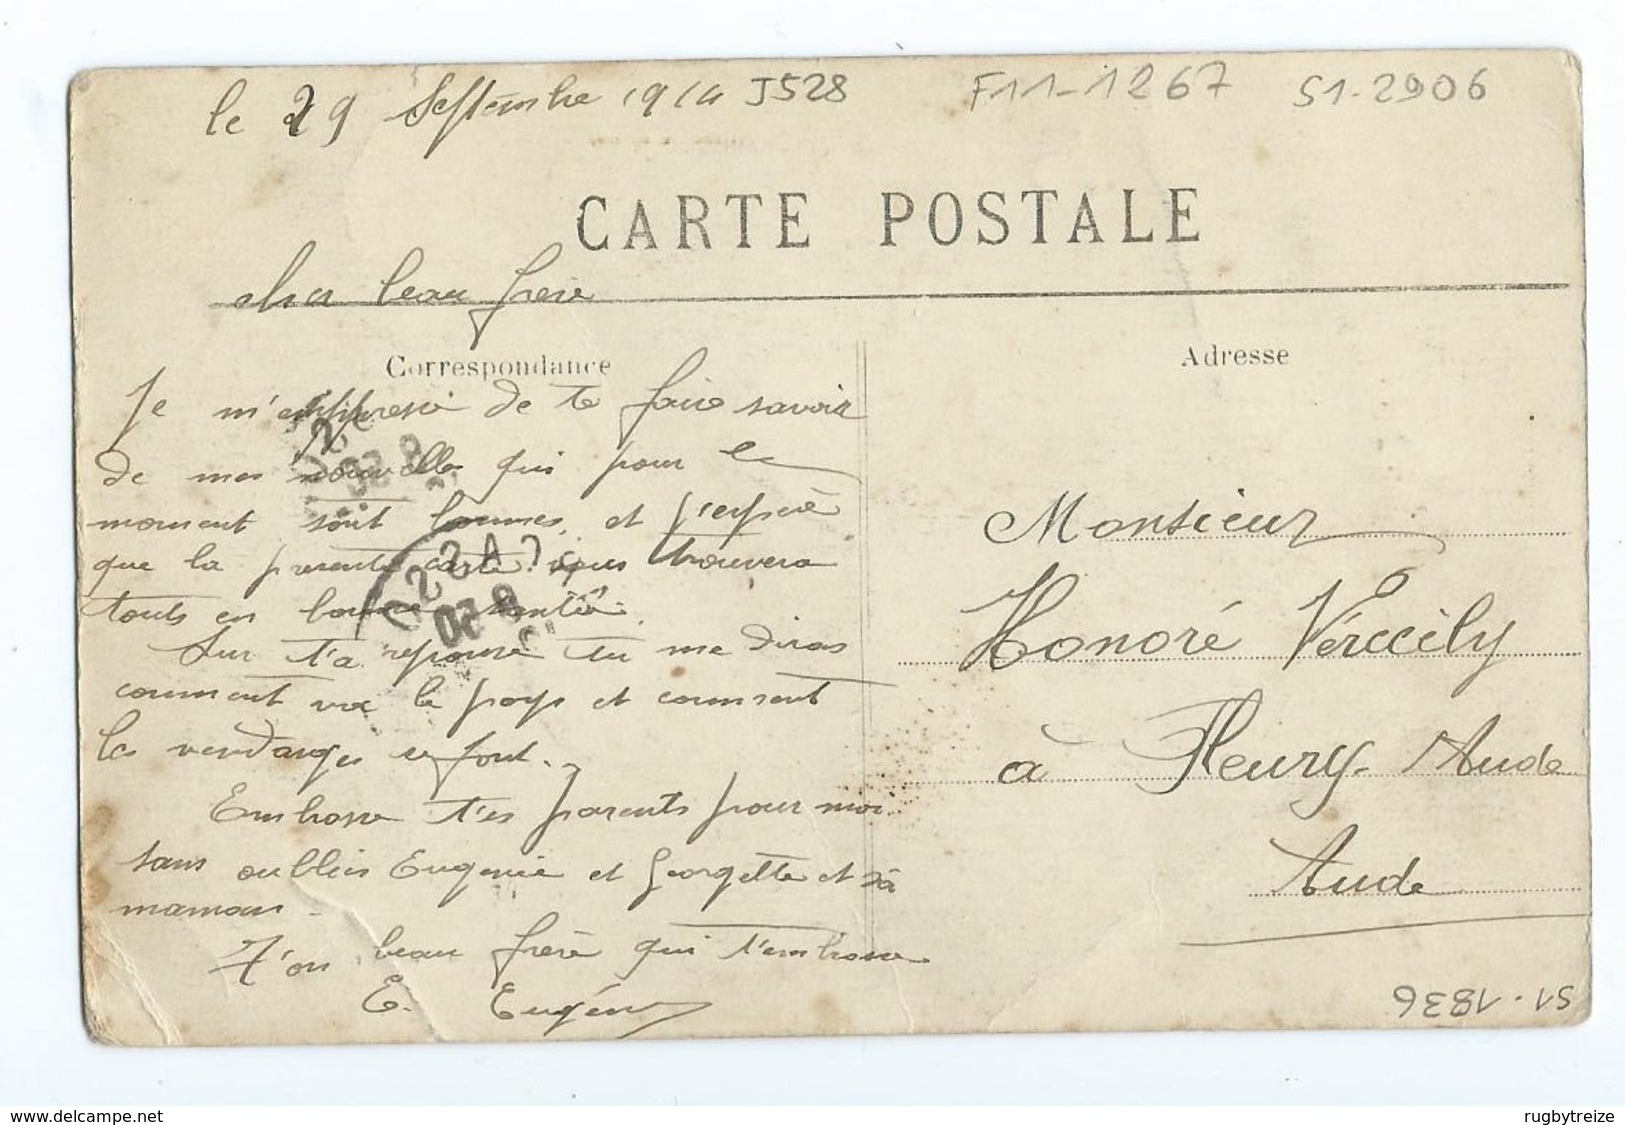 le 29 Septembre 1914 J528 F11-1267 S1-2906
CARTE POSTALE
cher beau frère
Correspondance
Adresse
Je m'empresse de te faire savoir
de mes nouvelles qui pour le
moment sont bonnes, et j'espère
que la presente carte vous trouvera
touts en bonne santé.
Sur t'a reponse tu me diras
comment va le pays et comment
les vendanges se font.
Embrasse t'es parents pour moi
sans oublier Eugenie et Georgette et sa
maman.
T'on beau frère qui t'embrasse
E. Eugène
Monsieur
Honoré Vérccily
à Fleury. Aude
Aude
S1.1836
www.delcampe.net
rugbytreize